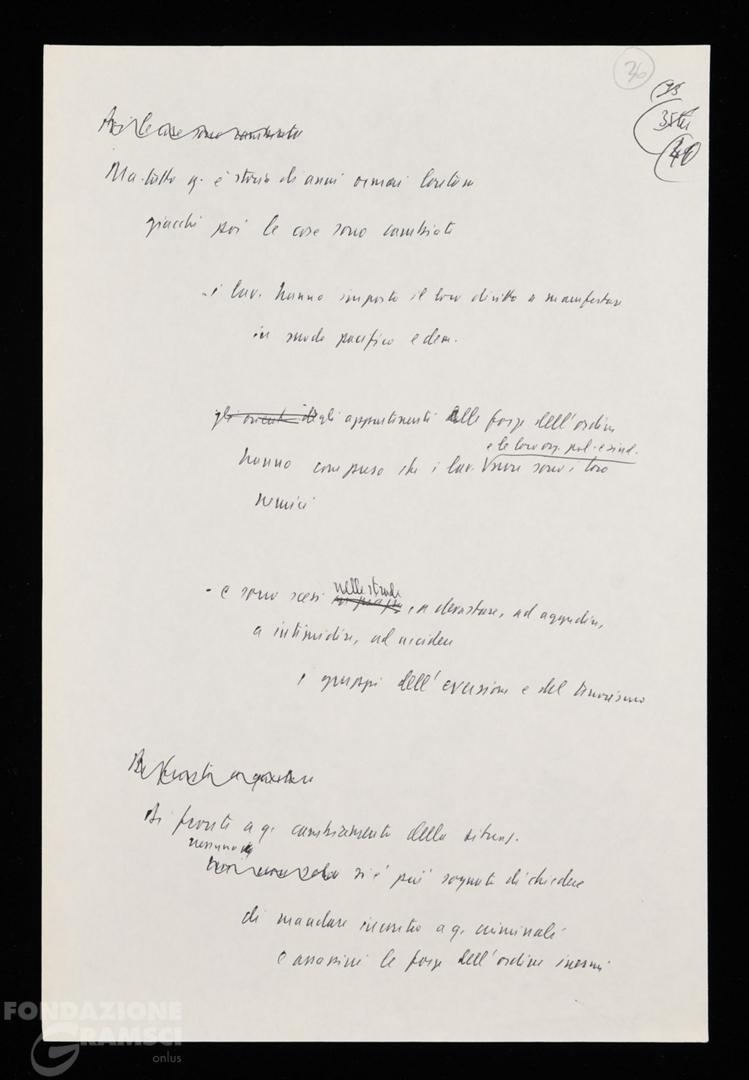 36
35
40
Poi le cose sono cambiate
Ma tutto q. è storia di anni ormai lontani
giacché poi le cose sono cambiate
- i lav. hanno imposto il loro diritto a manifestare
in modo pacifico e dem.
gli appartenenti alle forze dell'ordine
e le loro org. pol. e sind.
hanno compreso che i lav. non sono i loro
nemici
nelle strade
- e sono scesi in piazza, a devastare, ad aggredire,
a intimidire, ad uccidere
i gruppi dell'eversione e del terrorismo
Di fronte a q. cambiamento della situaz.
nessuno
si è più sognato di chiedere
di mandare incontro a q. criminali
e assassini le forze dell'ordine inermi
FONDAZIONE
GRAMSCI
onlus